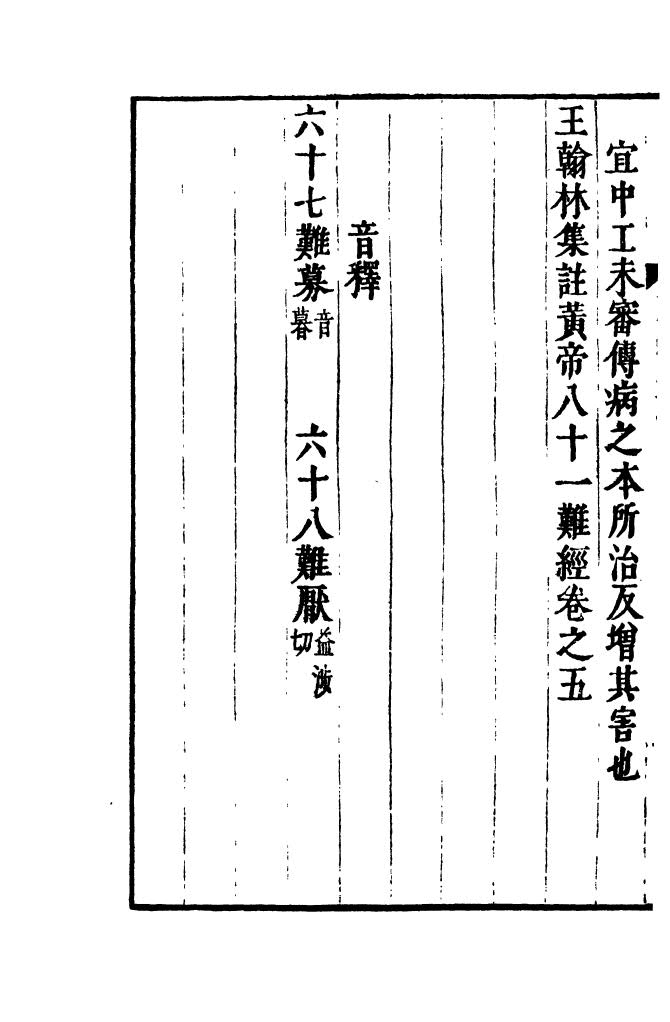 宜中工未審傳病之本所治反增其害也
王翰林集註黃帝八十一難經卷之五
音釋
六十七難募音暮　六十八難厭益涉切